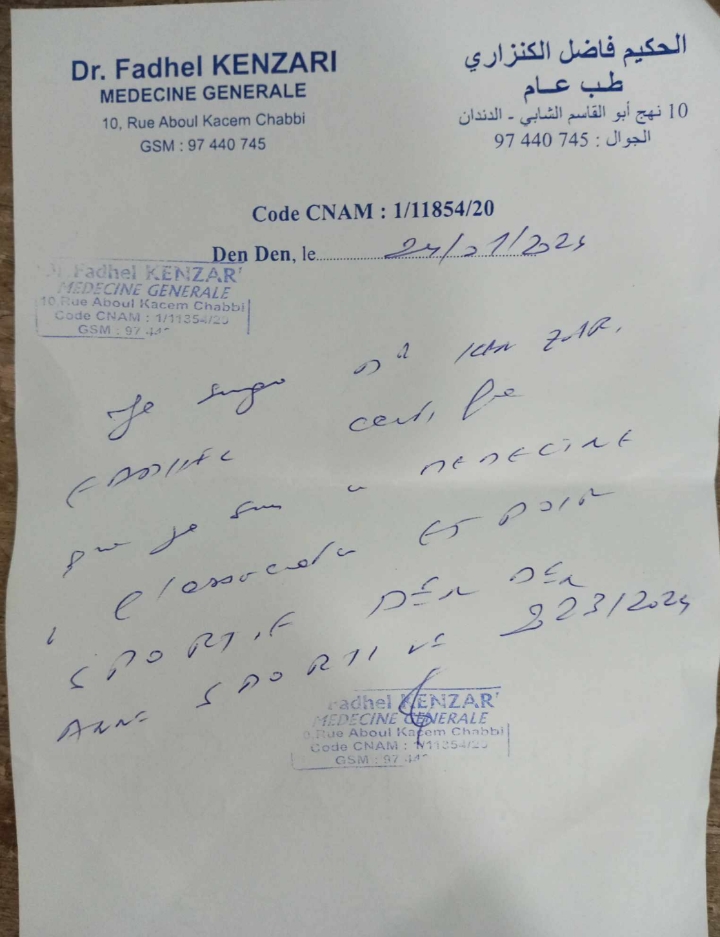 Dr. Fadhel KENZARI
MEDECINE GENERALE
10, Rue Aboul Kacem Chabbi
GSM : 97 440 745
الحكيم فاضل الكنزاري
طب عام
10 نهج أبو القاسم الشابي - الدندان
الجوال : 97 440 745
Code CNAM : 1/11854/20
Den Den, le 24/01/2024
Fadhel KENZAR
MEDECINE GENERALE
10 Rue Aboul Kacem Chabbi
Code CNAM : 1/11354/20
GSM : 97
Je Dr
certifie
que je suis MEDECINE
l'association ESPOIR
SPORTIF DEN DEN
ANNE SPORTIVE 2023/2024
Fadhel KENZAR
MEDECINE GENERALE
Rue Aboul Kacem Chabbi
Code CNAM : 1/11354/20
GSM : 97